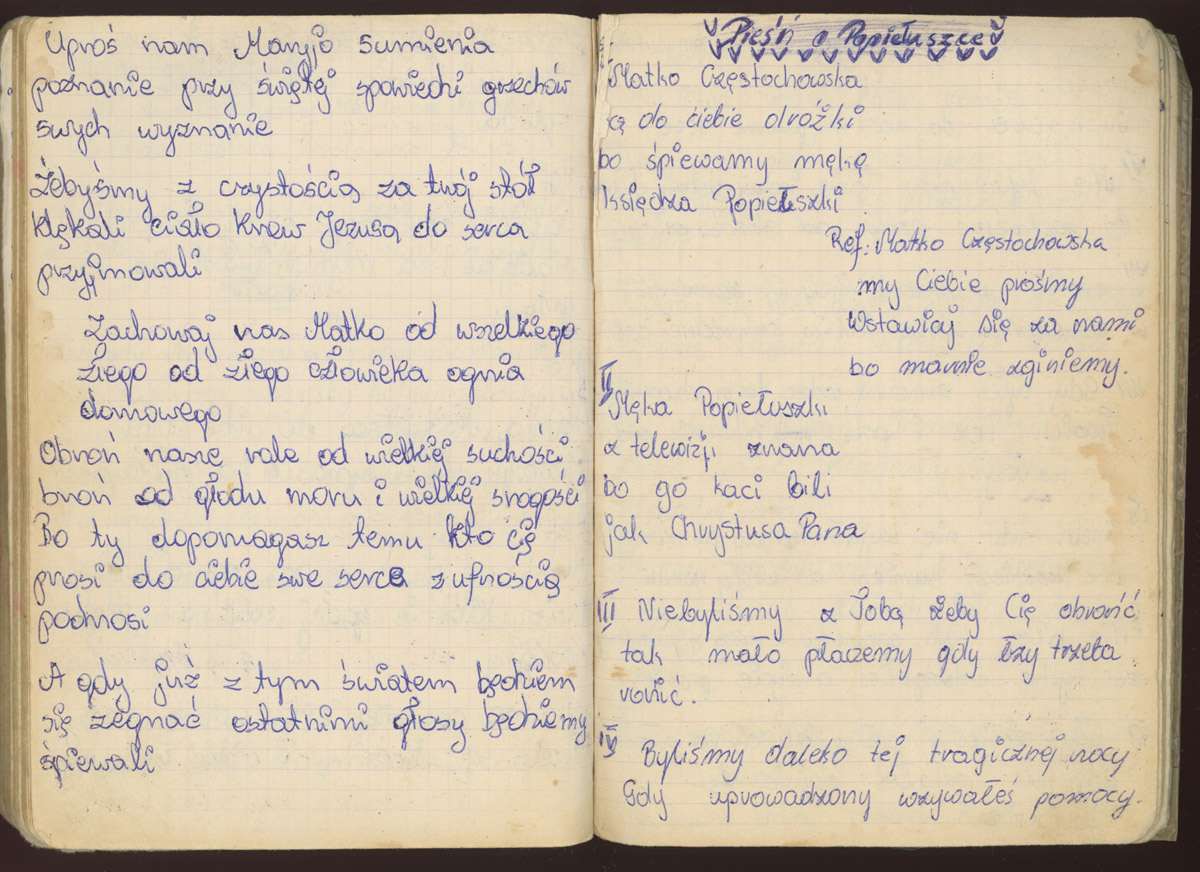 Uproś nam Maryjo sumienia
poznanie przy świętej spowiedni grzechów
swych wyznanie
Żebyśmy z czystością za twój stół
klękali ciało Krew Jezusa do serca
przyjmowali
Zachowaj nas Matko od wszelkiego
złego od złego człowieka ognia
domowego
Obroń nasze role od wielkiej suchości
broń od głodu moru i wielkiej srogości
Bo ty dopomagasz temu kto cię
prosi do ciebie swe serce z ufnością
podnosi
A gdy już z tym światem będziem
się żegnać ostatnimi głosy będziemy
śpiewali
Pieśń o Popiełuszce
Matko Częstochowska
są do ciebie dróżki
bo śpiewamy mękę
Księdza Popiełuszki
Ref: Matko Częstochowska
my Ciebie prośmy
Wstawiaj się za nami
bo marnie zginiemy.
II
Męka Popiełuszki
z telewizji znana
bo go kaci bili
jak Chrystusa Pana
III Niebyliśmy z Tobą żeby Cię obronić
tak mało płaczemy gdy łzy trzeba
ronić.
IV Byliśmy daleko tej tragicznej nocy
Gdy uprowadzony wzywałeś pomocy.